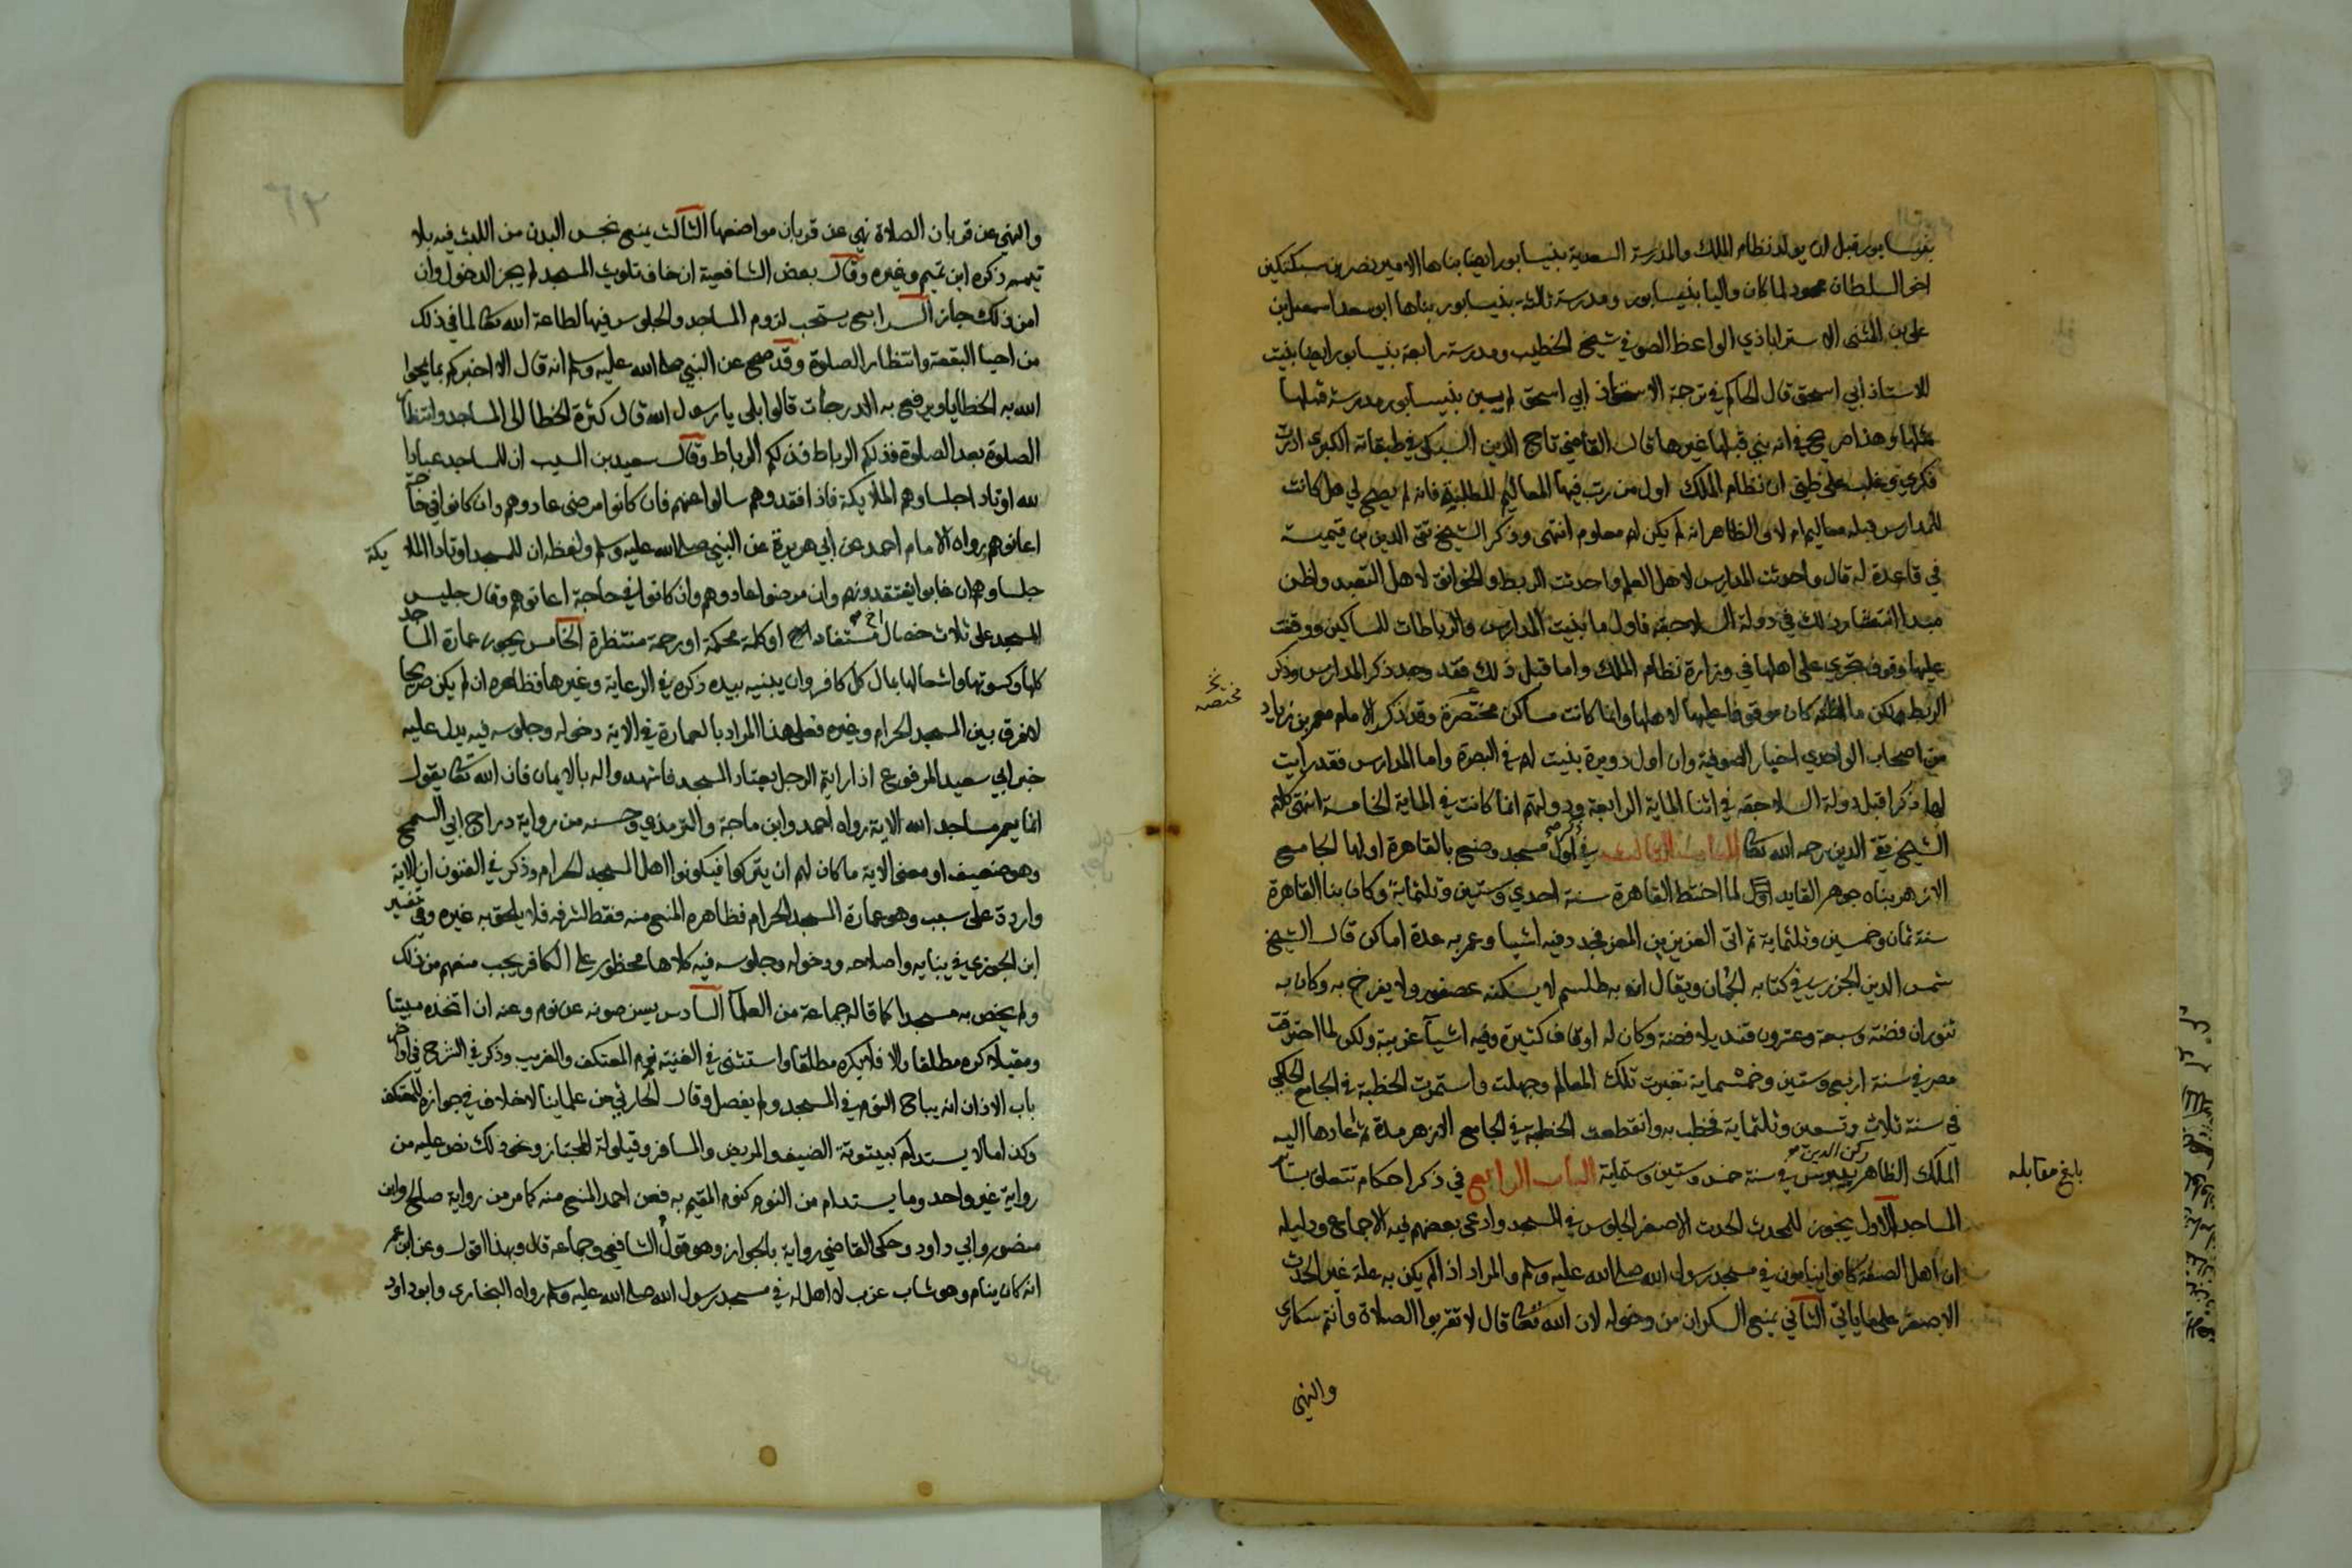 بنيسابور قبل ان يولد نظام الملك والمدرسة السعدية بنيسابور ايضا بناها الامير نصر بن سبكتكين
اخو السلطان محمود لما كان واليا بنيسابور ومدرسة ثالثة بنيسابور بناها ابو سعد اسمعيل بن
علي بن المثنى الاستراباذي الواعظ الصوفي شيخ الخطيب ومدرسة رابعة بنيسابور ايضا بنيت
للاستاذ ابي اسحق قال الحاكم في ترجمة الاستاذ ابي اسحق لم يبن بنيسابور مدرسة قبلها
مثلها وهذا صريح في انه بني قبلها غيرها قال القاضي تاج الدين السبكي في طبقاته الكبرى ادرت
فكري وغلب على ظني ان نظام الملك اول من رتب فيها المعاليم للطلبة فانه لم يصح لي هل كانت
للمدارس قبله معاليم ام لا والظاهر انه لم يكن لهم معلوم انتهى وذكر الشيخ تقي الدين بن تيمية
في قاعدة له قال واحدثت المدارس لاهل العلم واحدثت الربط والخوانق لاهل التعبد واظن
مبدا انتشار ذلك في دولة السلاجقة فاول ما بنيت المدارس والرباطات للمساكين ووقفت
عليها وقوف تجري على اهلها في وزارة نظام الملك واما قبل ذلك فقد وجد ذكر المدارس وذكر
الربط لكن ما اظن كان موقوفا عليها لاهلها وانما كانت مساكن مختصرة وقد ذكر الامام معمر بن زياد
من اصحاب الواحدي اخبار الصوفية وان اول دويرة بنيت لهم في البصرة واما المدارس فقد رايت
لها ذكرا قبل دولة السلاجقة في اثنا الماية الرابعة ودولتهم انما كانت في الماية الخامسة انتهى كلام
الشيخ تقي الدين رحمه الله تعالى الباب الثالث في ذكر اول مسجد وضع بالقاهرة اولها الجامع
الازهر بناه جوهر القايد اول لما اختط القاهرة سنة احدي وستين وثلثماية وكان بنا القاهرة
سنة ثمان وخمسين وثلثماية ثم اتى العزيز بن المعز فجدد فيه اشيا وعمر به عدة اماكن قال الشيخ
شمس الدين الجزري في كتابه الجمان ويقال ان به طلسم لا يسكنه عصفور ولا يفرخ به وكان به
تنوران فضة وسبعة وعشرون قنديلا فضة وكان له اوقاف كثيرة وفيه اشيآ غريبة ولكن لما احترقت
مصر في سنة اربع وستين وخمسماية تغيرت تلك المعالم وجهلت واستمرت الخطبة في الجامع الحاكمي
في سنة ثلاث وتسعين وثلثماية فخطب به وانقطعت الخطبة في الجامع الازهر مدة ثم اعادها اليه
الملك الظاهر ركن الدين بيبرس في سنة خمس وستين وستماية الباب الرابع في ذكر احكام تتعلق بسائر
المساجد الاول يجوز للمحدث الحدث الاصغر الجلوس في المسجد وادعى بعضهم فيه الاجماع ودليله
ان اهل الصفة كانوا ينامون في مسجد رسول الله صلى الله عليه وسلم والمراد اذا لم يكن به علة غير الحدث
الاصغر على ما ياتي الثاني يمنع السكران من دخوله لان الله تعالى قال لا تقربوا الصلاة وانتم سكارى
والنهي
مختصة
بلغ مقابله
٦٢
والنهي عن قربان الصلاة نهي عن قربان مواضعها الثالث يمنع نجس البدن من اللبث فيه بلا
تيمم ذكره ابن تميم وغيره وقال بعض الشافعية ان خاف تلويث المسجد لم يجز الدخول وان
امن ذلك جاز الرابع يستحب لزوم المساجد والجلوس فيها لطاعة الله تعالى لما في ذلك
من احيا البقعة وانتظار الصلوة وقد صح عن النبي صلى الله عليه وسلم انه قال الا اخبركم بما يمحوا
الله به الخطايا ويرفع به الدرجات قالوا بلى يا رسول الله قال كثرة الخطا الى المساجد وانتظار
الصلوة بعد الصلوة فذلكم الرباط فذلكم الرباط وقال سعيد بن المسيب ان للمساجد عبادا
لله اوتادا جلساوهم الملايكة فاذا فقدوهم سالوا عنهم فان كانوا مرضى عادوهم وان كانوا في حاجة
اعانوهم رواه الامام احمد عن ابي هريرة عن النبي صلى الله عليه وسلم ولفظه ان للمسجد اوتادا الملايكة
جلساوهم ان غابوا يفتقدونهم وان مرضوا عادوهم وان كانوا في حاجة اعانوهم وقال جليس
المسجد على ثلاث خصال اخ مستفاد او كلمة محكمة او رحمة منتظرة الخامس يجوز عمارة المساجد
كلها وكسوتها واشعالها بمال كل كافر وان يبنيه بيده ذكره في الرعاية وغيرها فظاهره ان لم يكن صريحا
لا فرق بين المسجد الحرام وغيره فعلى هذا المراد بالعمارة في الاية دخوله وجلوسه فيه يدل عليه
خبر ابي سعيد المرفوع اذا رايتم الرجل يعتاد المسجد فاشهدوا له بالايمان فان الله تعالى يقول
انما يعمر مساجد الله الاية رواه احمد وابن ماجة والترمذي وحسنه من رواية دراج ابي السمح
وهو ضعيف او معنى الاية ما كان لهم ان يتركوا فيكونوا اهل المسجد الحرام وذكر في الفنون ان الاية
واردة على سبب وهو عمارة المسجد الحرام فظاهره المنع منه فقط لشرفه فلا يلحق به غيره وفي تفسير
ابن الجوزي في بنايه واصلاحه ودخوله وجلوسه فيه كلاهما محظور على الكافر يجب منعهم من ذلك
ولم يخص به مسجدا كما قاله جماعة من العلمآ السادس يسن صونه عن نوم وعنه ان اتخذه مبيتا
ومقيلا كره مطلقا والا فلا يكره مطلقا واستثنى في الغنية نوم المعتكف والغريب وذكر في الشرح في اواخر
باب الاذان انه يباح النوم في المسجد ولم يفصل وقال الحارثي من علماينا لا خلاف في جوازه للمعتكف
وكذا ما لا يستدام كبيتوتة الضيف والمريض والمسافر وقيلولة المجتاز ونحو ذلك نص عليه من
رواية غير واحد وما يستدام من النوم كنوم المقيم به فعن احمد المنع منه كما مر من رواية صالح وابن
منصور وابي داود وحكى القاضي رواية بالجواز وهو قول الشافعي وجماعه قال وبهذا اقول وعن ابن عمر
انه كان ينام وهو شاب عزب لا اهل له في مسجد رسول الله صلى الله عليه وسلم رواه البخاري وابو داود